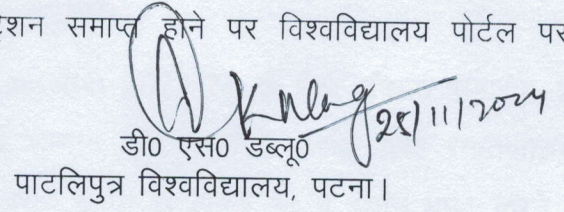 शन समाप्त होने पर विश्वविद्यालय पोर्टल पर
25/11/2024
डी0 एस0 डब्लू0
पाटलिपुत्र विश्वविद्यालय, पटना।